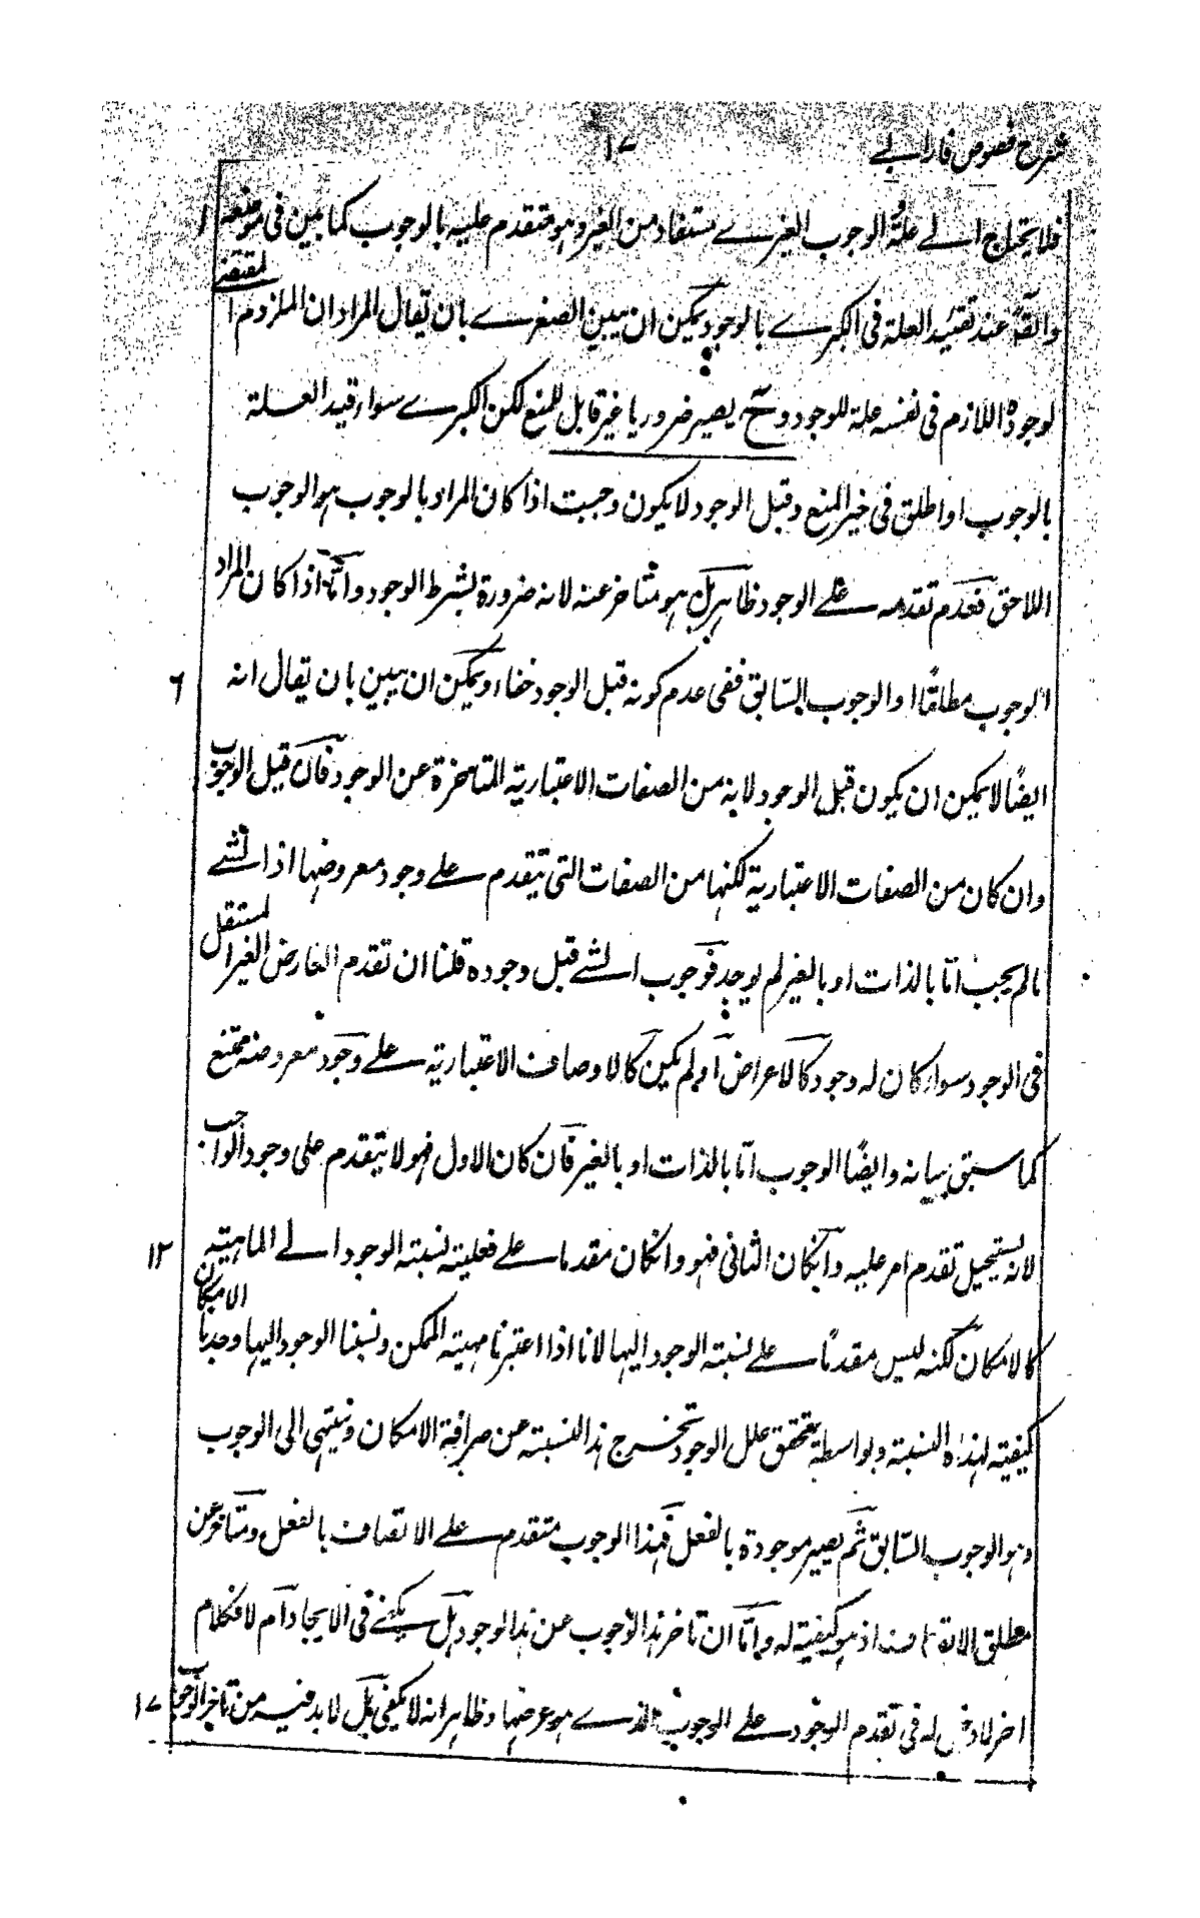 شرح فصوص فارابے
١٧
فلا يحتاج الے علة والوجوب الغيرے مستفاد من الغير وهو متقدم عليه بالوجوب كما بين فى موضعه
وايضًا عند تقييد العلة فى الكبرے بالوجود يمكن ان يبين الصغرے بان يقال المراد ان الملزوم المقتضى
لوجوده اللازم فى نفسه علة للوجود وح يصير ضروريا غير قابل للمنع لكن الكبرے سواء قيد العلة
بالوجوب او اطلق فى حيز المنع وقبل الوجود لا يكون وجبت اذا كان المراد بالوجوب هو الوجوب
اللاحق فعدم تقدمه علے الوجود ظاهر بل هو متاخر عنه لانه ضرورة بشرط الوجود واما اذا كان المراد
الوجوب مطلقًا او الوجوب السابق ففى عدم كونه قبل الوجود خفاء ويمكن ان يبين بان يقال انه
٦
ايضًا لا يمكن ان يكون قبل الوجود لانه من الصفات الاعتبارية المتاخرة عن الوجود فان قيل الوجوب
وان كان من الصفات الاعتبارية لكنها من الصفات التى تتقدم علے وجود معروضها اذ الشے
ما لم يجب اما بالذات او بالغير لم يوجد فوجوب الشے قبل وجوده قلنا ان تقدم العارض الغير المستقل
فى الوجود سواء كان له وجود كالاعراض او لم يكن كالاوصاف الاعتبارية علے وجود معروضه ممتنع
كما سبق بيانه وايضًا الوجوب اما بالذات او بالغير فان كان الاول فهو لا يتقدم على وجود الواجب
لانه يستحيل تقدم امر عليه وان كان الثانى فهو وان كان مقدما علے فعلية نسبة الوجود الے الماهية
١٢
كالامكان لكنه ليس مقدمًا علے نسبة الوجود اليها لانا اذا اعتبرنا مهية الممكن ونسبنا الوجود اليها وجدنا الامكان
كيفية لهذه النسبة وبواسطة تحقق علل الوجود تخرج هذا النسبة عن صرافة الامكان وينتهى الى الوجوب
وهو الوجوب السابق ثم يصير موجودة بالفعل فهذا الوجوب متقدم علے الاتصاف بالفعل ومتاخر عن
مطلق الاتصاف اذ هو كيفية له واما ان تاخر هذا الوجوب عن هذا الوجود بل يكفے فى الايجاد ام لا فكلام
اخر لا دخل له فى تقدم الوجود علے الوجوب الذے هو عرضها وظاهر انه لا يكفى بل لا بد فيه من تاخر الوجوب
١٧